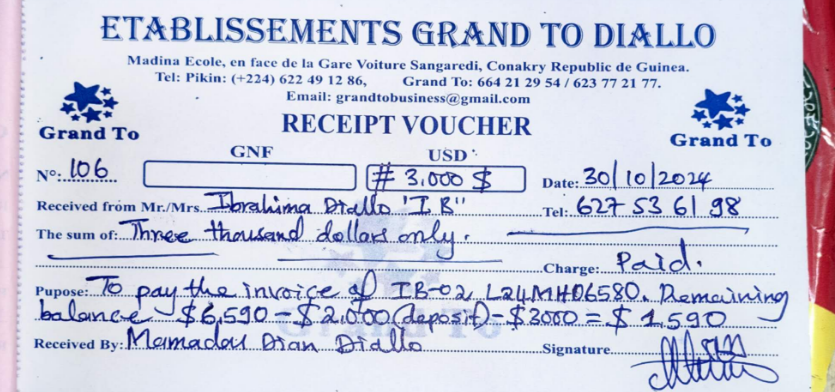 ETABLISSEMENTS GRAND TO DIALLO
Madina Ecole, en face de la Gare Voiture Sangaredi, Conakry Republic de Guinea.
Tel: Pikin: (+224) 622 49 12 86, Grand To: 664 21 29 54 / 623 77 21 77.
Email: grandtobusiness@gmail.com
Grand To
RECEIPT VOUCHER
Grand To
GNF USD
N°: 106 # 3.000 $ Date: 30/10/2024
Received from Mr./Mrs. Ibrahima Diallo "I B" Tel: 627 53 61 98
The sum of: Three thousand dollars only.
Charge: Paid.
Pupose: To pay the invoice of IB-02 L24MH06580. Remaining
balance $6,590 - $2.000 (deposit) - $3000 = $ 1,590
Received By: Mamadou Dian Diallo Signature